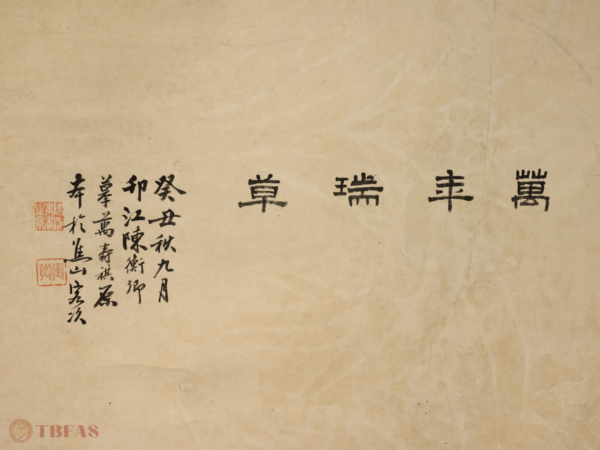 萬年瑞草
癸丑秋九月
邗江陳衡卿
摹萬壽祺原
本於焦山客次
TBFAS